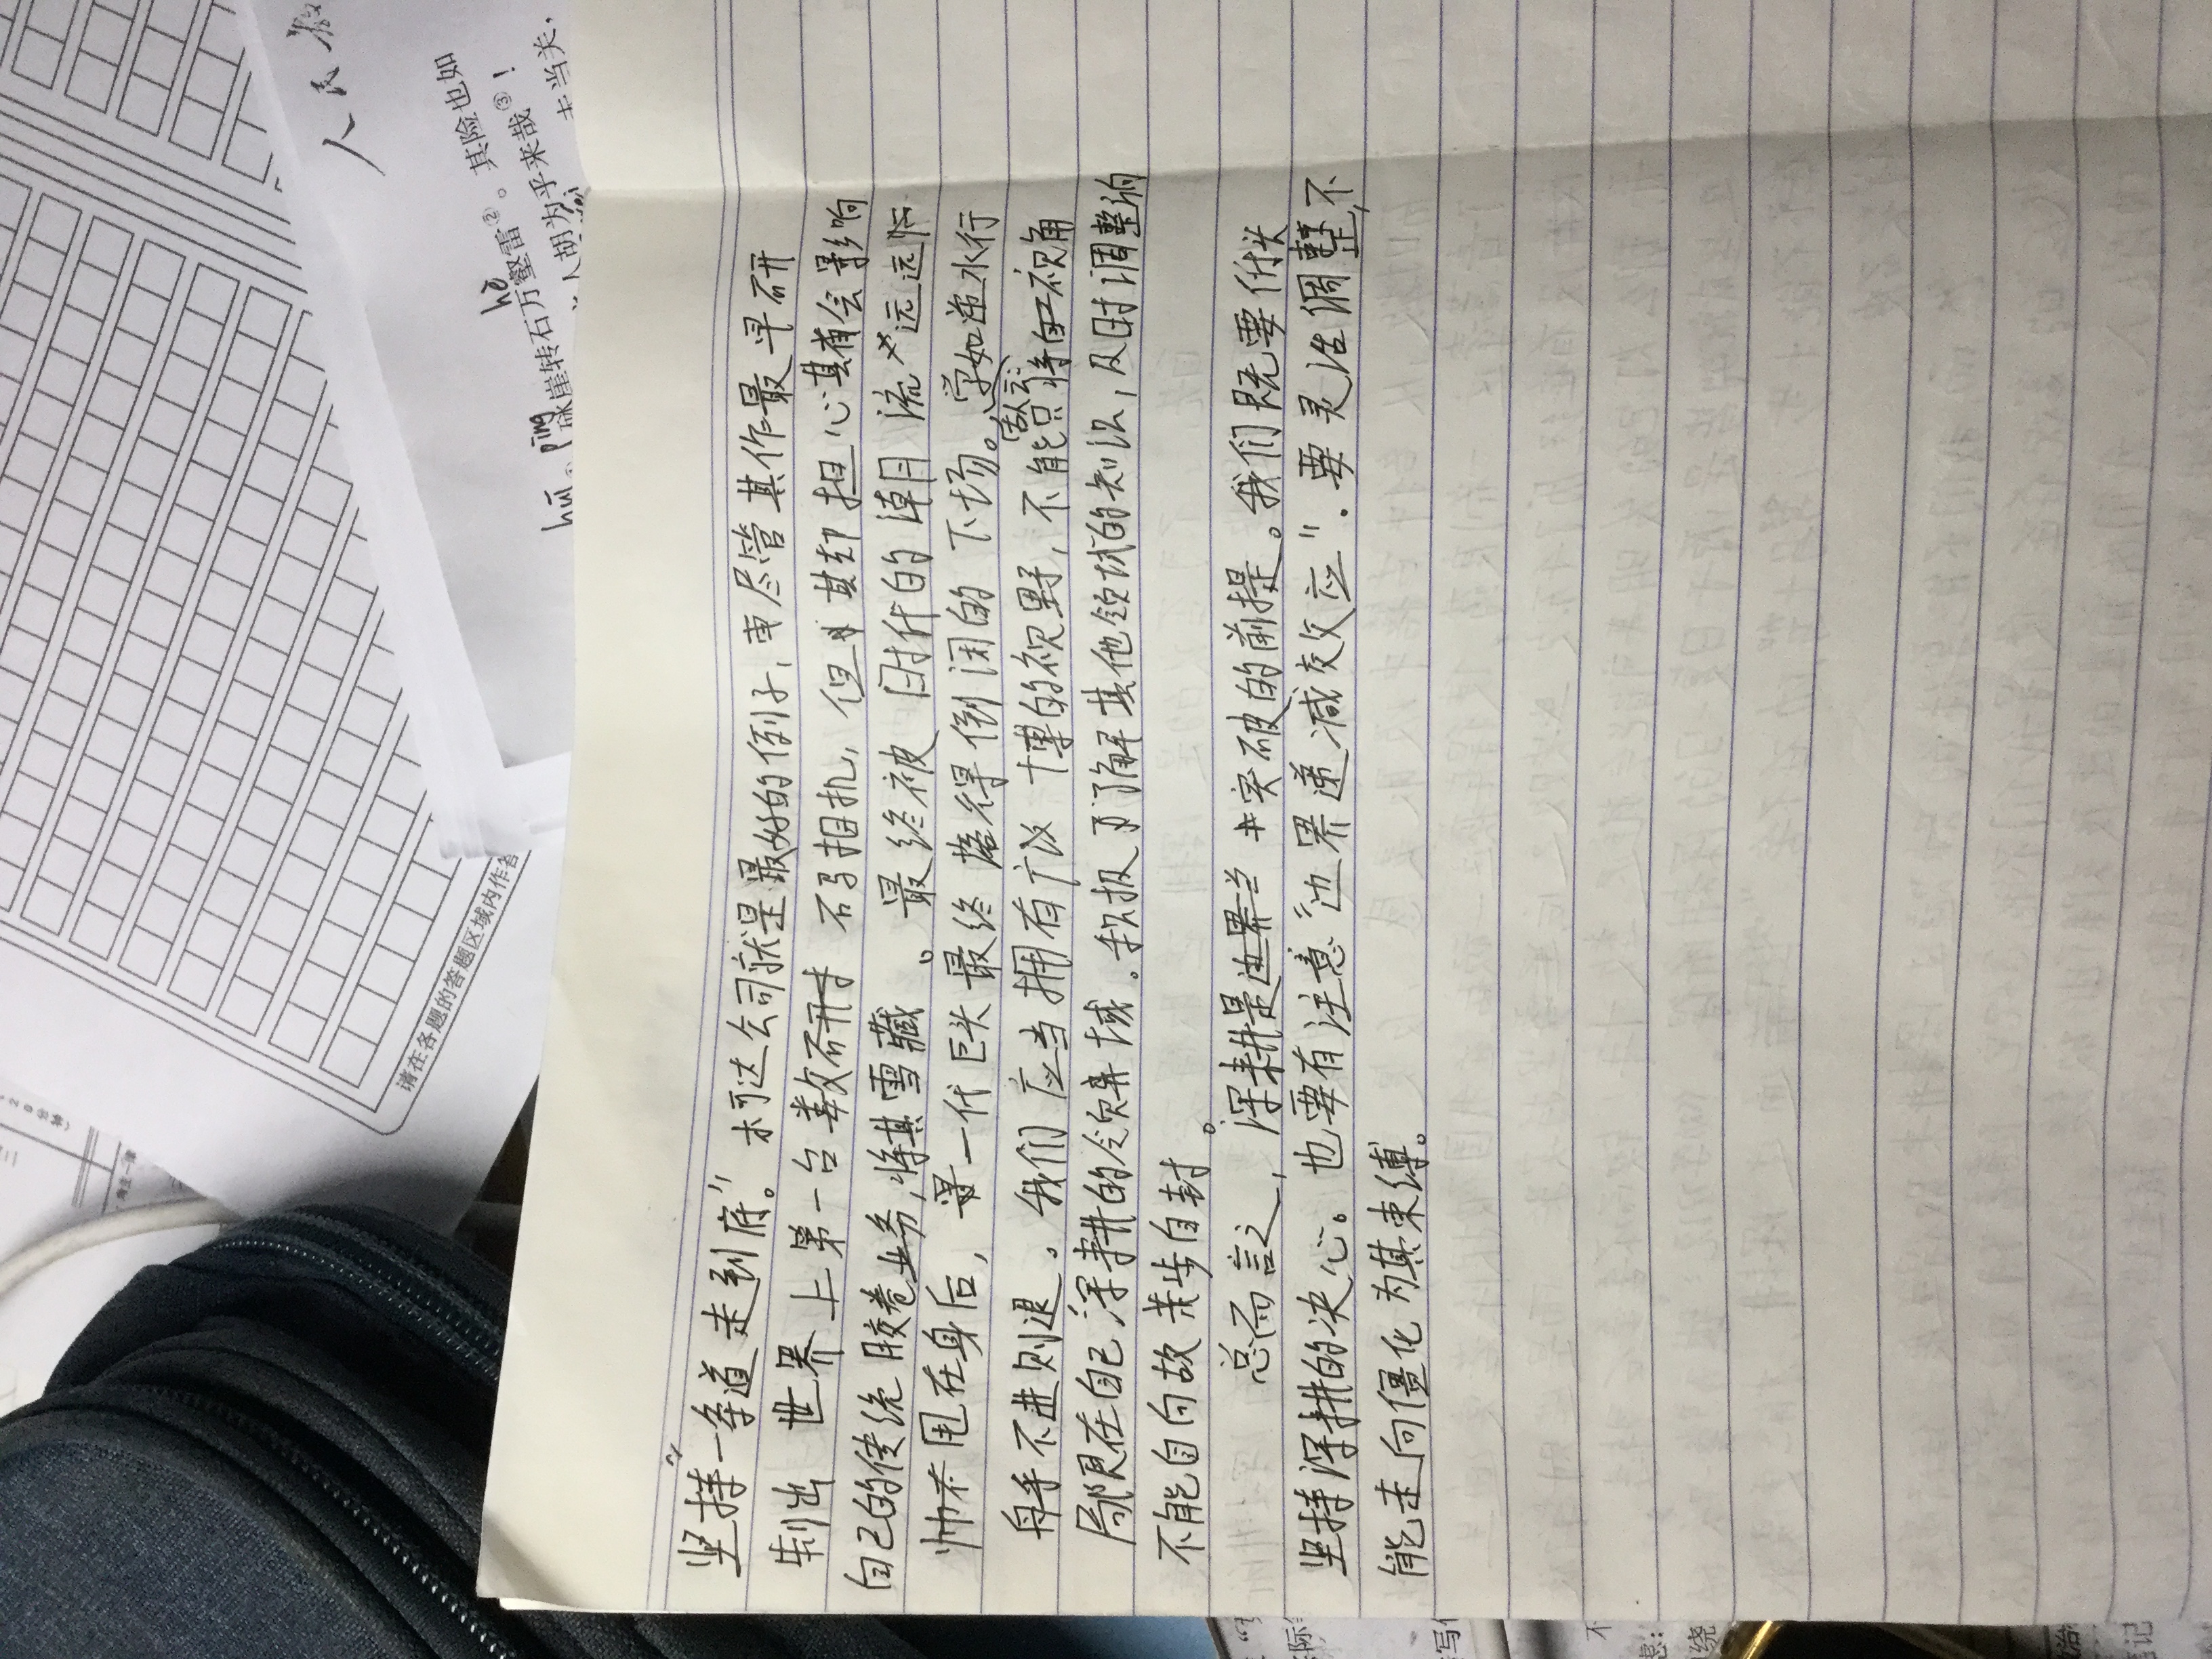 “坚持一条道走到底。”柯达公司就是最好的例子，尽管其作最早研
制出世界上第一台数码相机，但其却担心其会影响
自己的传统胶卷业务，将其雪藏。最终被时代的潮流远远
甩在身后，一代巨头最终落得倒闭的下场。学如逆水行
舟，不进则退。我们应当拥有广博的视野，不能只将自己视角
局限在自己深耕的领域。积极了解其他领域的知识，及时调整
不能自向故步自封。
总而言之，深耕是突破的前提。我们既要
坚持深耕的决心。也要有注意“边界递减效应”.要灵活调整,不
能走向僵化为其束缚。
人民教
其险也如
hē
砯崖转石万壑雷②。
人胡为乎来哉③！
夫当关,
huī
pīng
请在各题的答题区域内作答